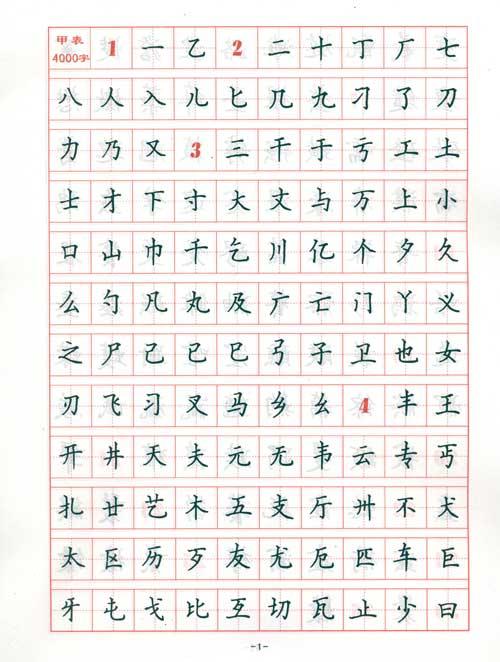 甲表 4000字 1 一 乙 2 二 十 丁 厂 七
八 人 入 儿 匕 几 九 刁 了 刀
力 乃 又 3 三 干 于 亏 工 土
士 才 下 寸 大 丈 与 万 上 小
口 山 巾 千 乞 川 亿 个 夕 久
么 勺 凡 丸 及 广 亡 门 丫 义
之 尸 己 已 巳 弓 子 卫 也 女
刃 飞 习 叉 马 乡 幺 4 丰 王
开 井 天 夫 元 无 韦 云 专 丐
扎 廿 艺 木 五 支 厅 卅 不 犬
太 区 历 歹 友 尤 厄 匹 车 巨
牙 屯 戈 比 互 切 瓦 止 少 曰
-1-